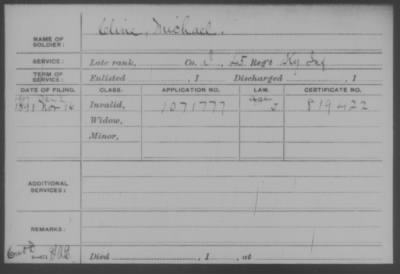 NAME OF SOLDIER: Cline, Michael.
SERVICE: Late rank, Co. I, 45 Reg't Ky Inf
TERM OF SERVICE: Enlisted , 1 Discharged , 1
DATE OF FILING. CLASS. APPLICATION NO. LAW. CERTIFICATE NO.
1891 Nov 14 Invalid, 1071777 819422
Widow,
Minor,
ADDITIONAL SERVICES:
REMARKS:
Died , 1 , at